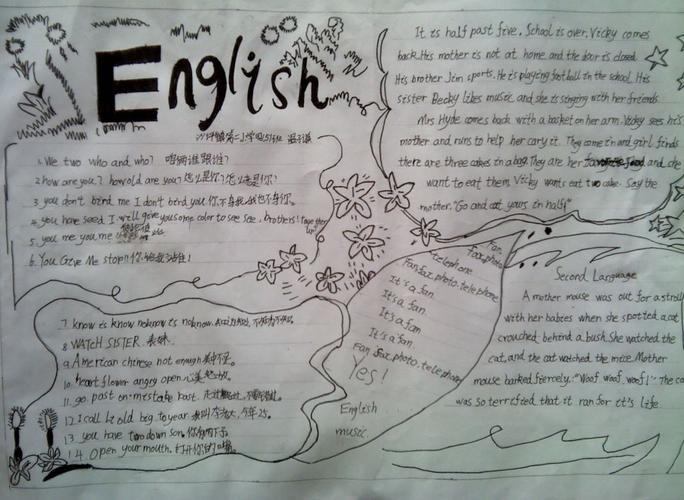 English
1. We two who and who? 咱俩谁跟谁?
2. how are you? how old are you? 怎么是你?怎么老是你?
3. you don't bird me I don't bird you 你不鸟我我也不鸟你。
4. you have seed I will give you some color to see see, brothers! together up!
5. you me you me
6. You Give Me stop!! 你给我站住!
7. know is know noknow is noknow.
8. WATCH SISTER. 表妹.
9. American chinese not enough 美中不足。
10. heart flower angry open 心花怒放。
11. go past no mistake past.
12. I call Li old big. toyear
13. you have two down son. 你有两下子。
14. Open your mouth. 打开你的嘴。
It is half past five. School is over. Vicky comes
back. His mother is not at home and the door is closed
His brother Jim sports. He is playing football in the school. His
sister Becky likes music and she is singing with her friends
Mrs Hyde comes back with a basket on her arm. Vicky sees his
mother and runs to help her cary it. They come in and girl finds
there are three cakes in a bag. They are her food and she
want to eat them. Vicky wants eat two cake. Say the
mother. "Go and cut yours in half!"
Fan,
fax, photo
telephone
Fan. fax. photo. telephone
It's a fan.
It's a fan.
It's a fan.
It's a fan.
Fan. fax. photo. telephone
Yes!
English
music.
Second Language
A mother mouse was out for a stroll
with her babies when she spotted a cat
crouched behind a bush. She watched the
cat, and the cat watched the mice. Mother
mouse barked fiercely, "Woof, woof, woof!" The ca
was so terrified that it ran for it's life